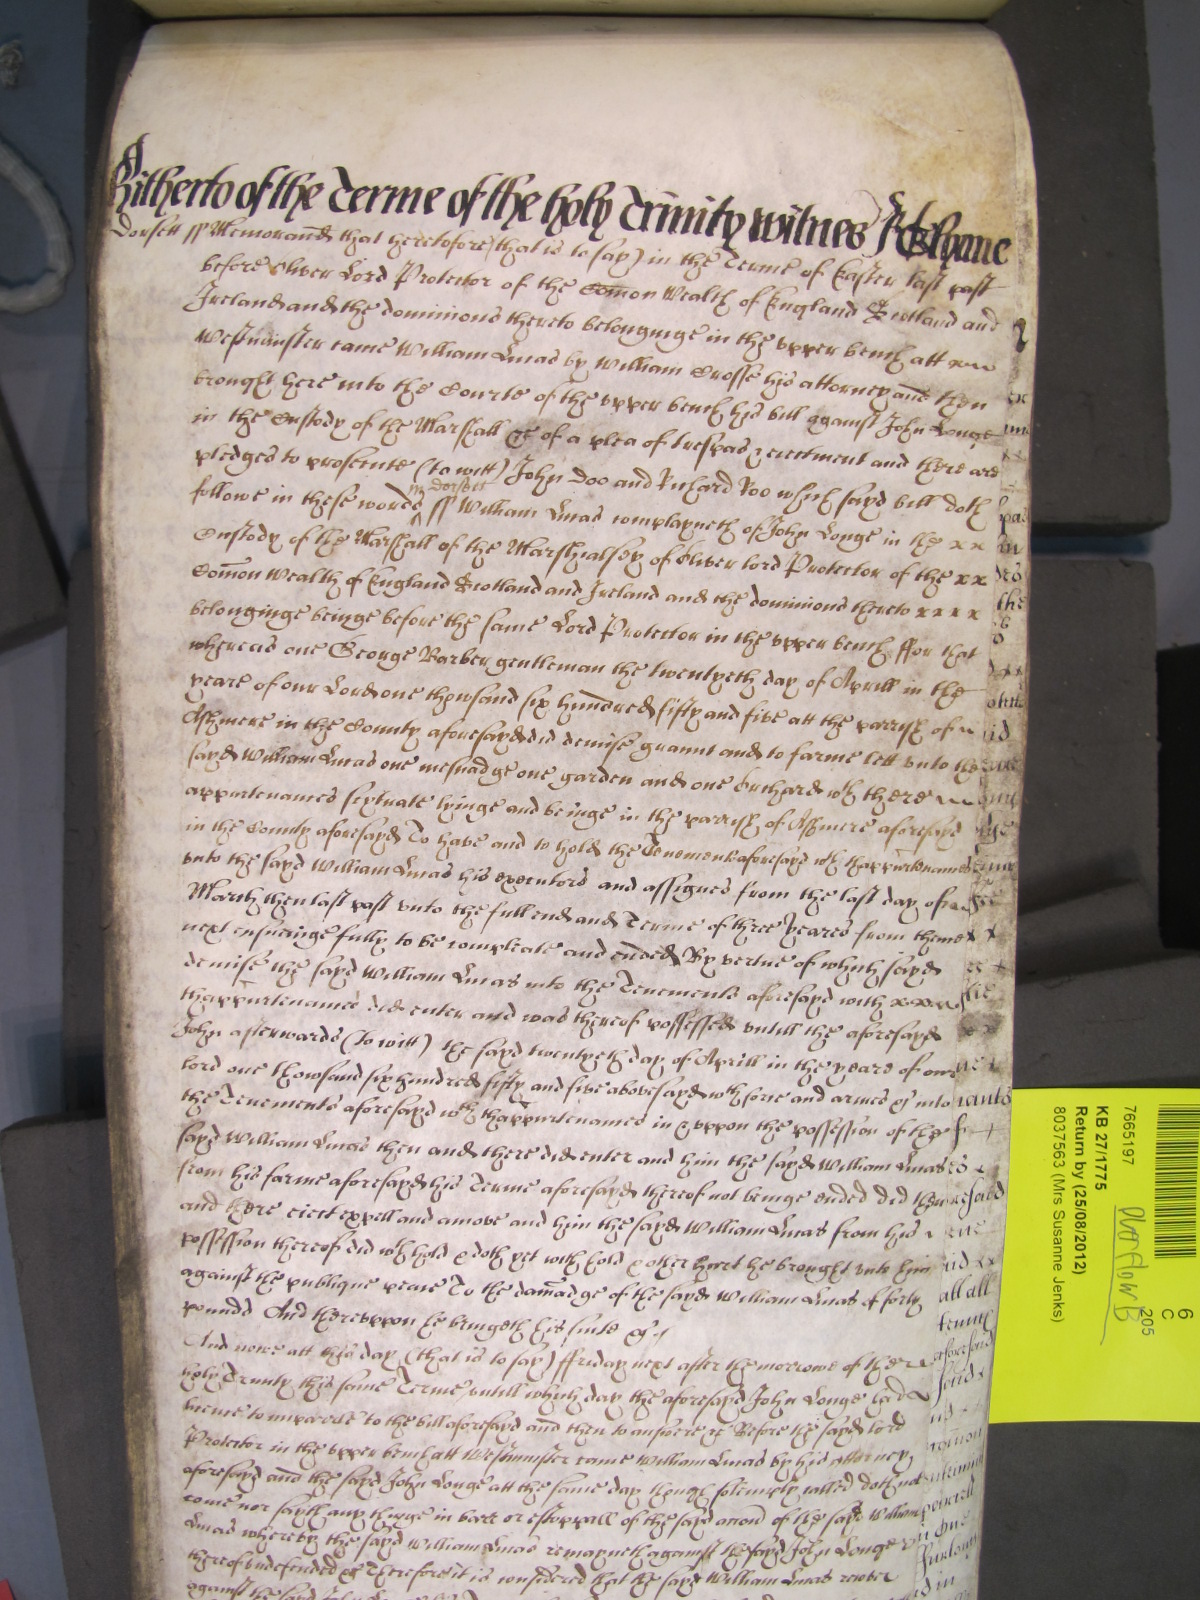 Hitherto of the Terme of the holy Trinity witnes
Dorsett ss Memorand that heretofore (that is to say) in the Terme of Easter last past
before Oliver Lord Protector of the Comon Wealth of England Scotland and
Ireland and the dominions thereto belonginge in the vpper bench att
Westminster came William Lucas by William Crosse his attorney and then
brought here into the Courte of the vpper bench his bill against John Longe
in the Custody of the Marshall &c of a plea of trespas & eiectment and there are
pledges to prosecute (to witt) John Doo and Richard Roo which sayd bill doth
followe in these words ss William Lucas complayneth of John Longe in the x x
m dorsett
Custody of the Marshall of the Marshialsey of Oliver lord Protector of the x x
Comon Wealth of England Scotland and Ireland and the dominions thereto x x x x
belonginge beinge before the same Lord Protector in the vpper bench ffor that
whereas one George Barber gentleman the twentyeth day of Aprill in the
yeare of our Lord one thowsand six hundred fifty and five att the parrish of
Ashmere in the County aforesayd did demise graunt and to farme lett vnto the
sayd William Lucas one mesuadge one garden and one Orchard wth there
appurtenances scytuate lyinge and beinge in the parrish of Ashmere aforesayd
in the County aforesayd To have and to hold the Tenements aforesayd wth thappurtenances
vnto the sayd William Lucas his executors and assignes from the last day of
March then last past vnto the full end and Terme of three yeares from thence x x
next ensueinge fully to be compleate and ended By vertue of which sayd
demise the sayd William Lucas into the Tenements aforesayd with
thappurtenances did enter and was thereof possessed vntill the aforesayd
John afterwards (to witt) the sayd twentyeth day of Aprill in the yeare of our
lord one thowsand six hundred fifty and five abovesayd wth force and armes &c into
the Tenements aforesayd wth thappurtenances in & vppon the possession of the
sayd William Lucas then and there did enter and him the sayd William Lucas
from his farme aforesayd his Terme aforesayd thereof not beinge ended did then
and there eiect expell and amove and him the sayd William Lucas from his
possession thereof did wth hold & doth yet with hold & other hurt he brought vnto him
against the publique peace To the damadge of the sayd William Lucas of forty
pounds And therevppon he bringeth his suite &c
And nowe att this day (that is to say) ffriday next after the morrowe of the
holy Trinity this same Terme vntill which day the aforesayd John Longe had
licence to imparle to the bill aforesayd and then to answere &c Before the sayd lord
Protector in the vpper bench att Westminster came William Lucas by his attorney
aforesayd and the sayd John Longe att the same day though solemply called doth not
come nor sayth any thinge in barr or estoppell of the sayd accion of the sayd William
Lucas whereby the sayd William Lucas remayneth against the sayd John Longe
thereof vndefended &c Therefore it is considered that the sayd William Lucas recover
against the sayd John
6
C
205
7665197
KB 27/1775
Return by (25/08/2012)
8037563 (Mrs Susanne Jenks)
Overflow B